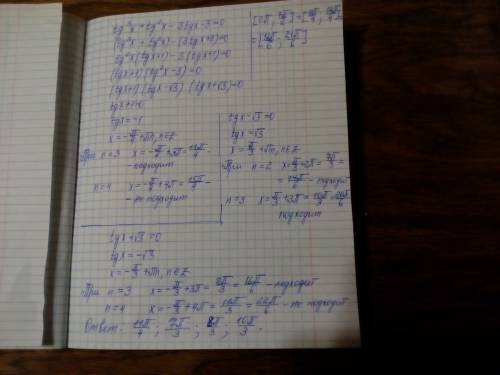 tg³x + tg²x - 3tgx - 3 = 0
(tg³x + tg²x) - (3tgx + 3) = 0
tg²x(tgx+1) - 3(tgx+1) = 0
(tgx+1)(tg²x-3) = 0
(tgx+1)(tgx-√3)(tgx+√3) = 0
tgx+1=0
tgx = -1
x = -π/4 + πn, n∈Z
При n=3 x = -π/4 + 3π = 11π/4
- подходит
n=4 x = -π/4 + 4π = 15π/4 -
- не подходит
tgx - √3 = 0
tgx = √3
x = π/3 + πn, n∈Z
При n=2 x = π/3 + 2π = 7π/3 =
= 14π/6 - подходит
n=3 x = π/3 + 3π = 10π/3 = 20π/6
подходит
tgx + √3 = 0
tgx = -√3
x = -π/3 + πn, n∈Z
При n=3 x = -π/3 + 3π = 8π/3 = 16π/6 - подходит
n=4 x = -π/3 + 4π = 11π/3 = 22π/6 - не подходит
Ответ: 11π/4; 7π/3; 8π/3; 10π/3.